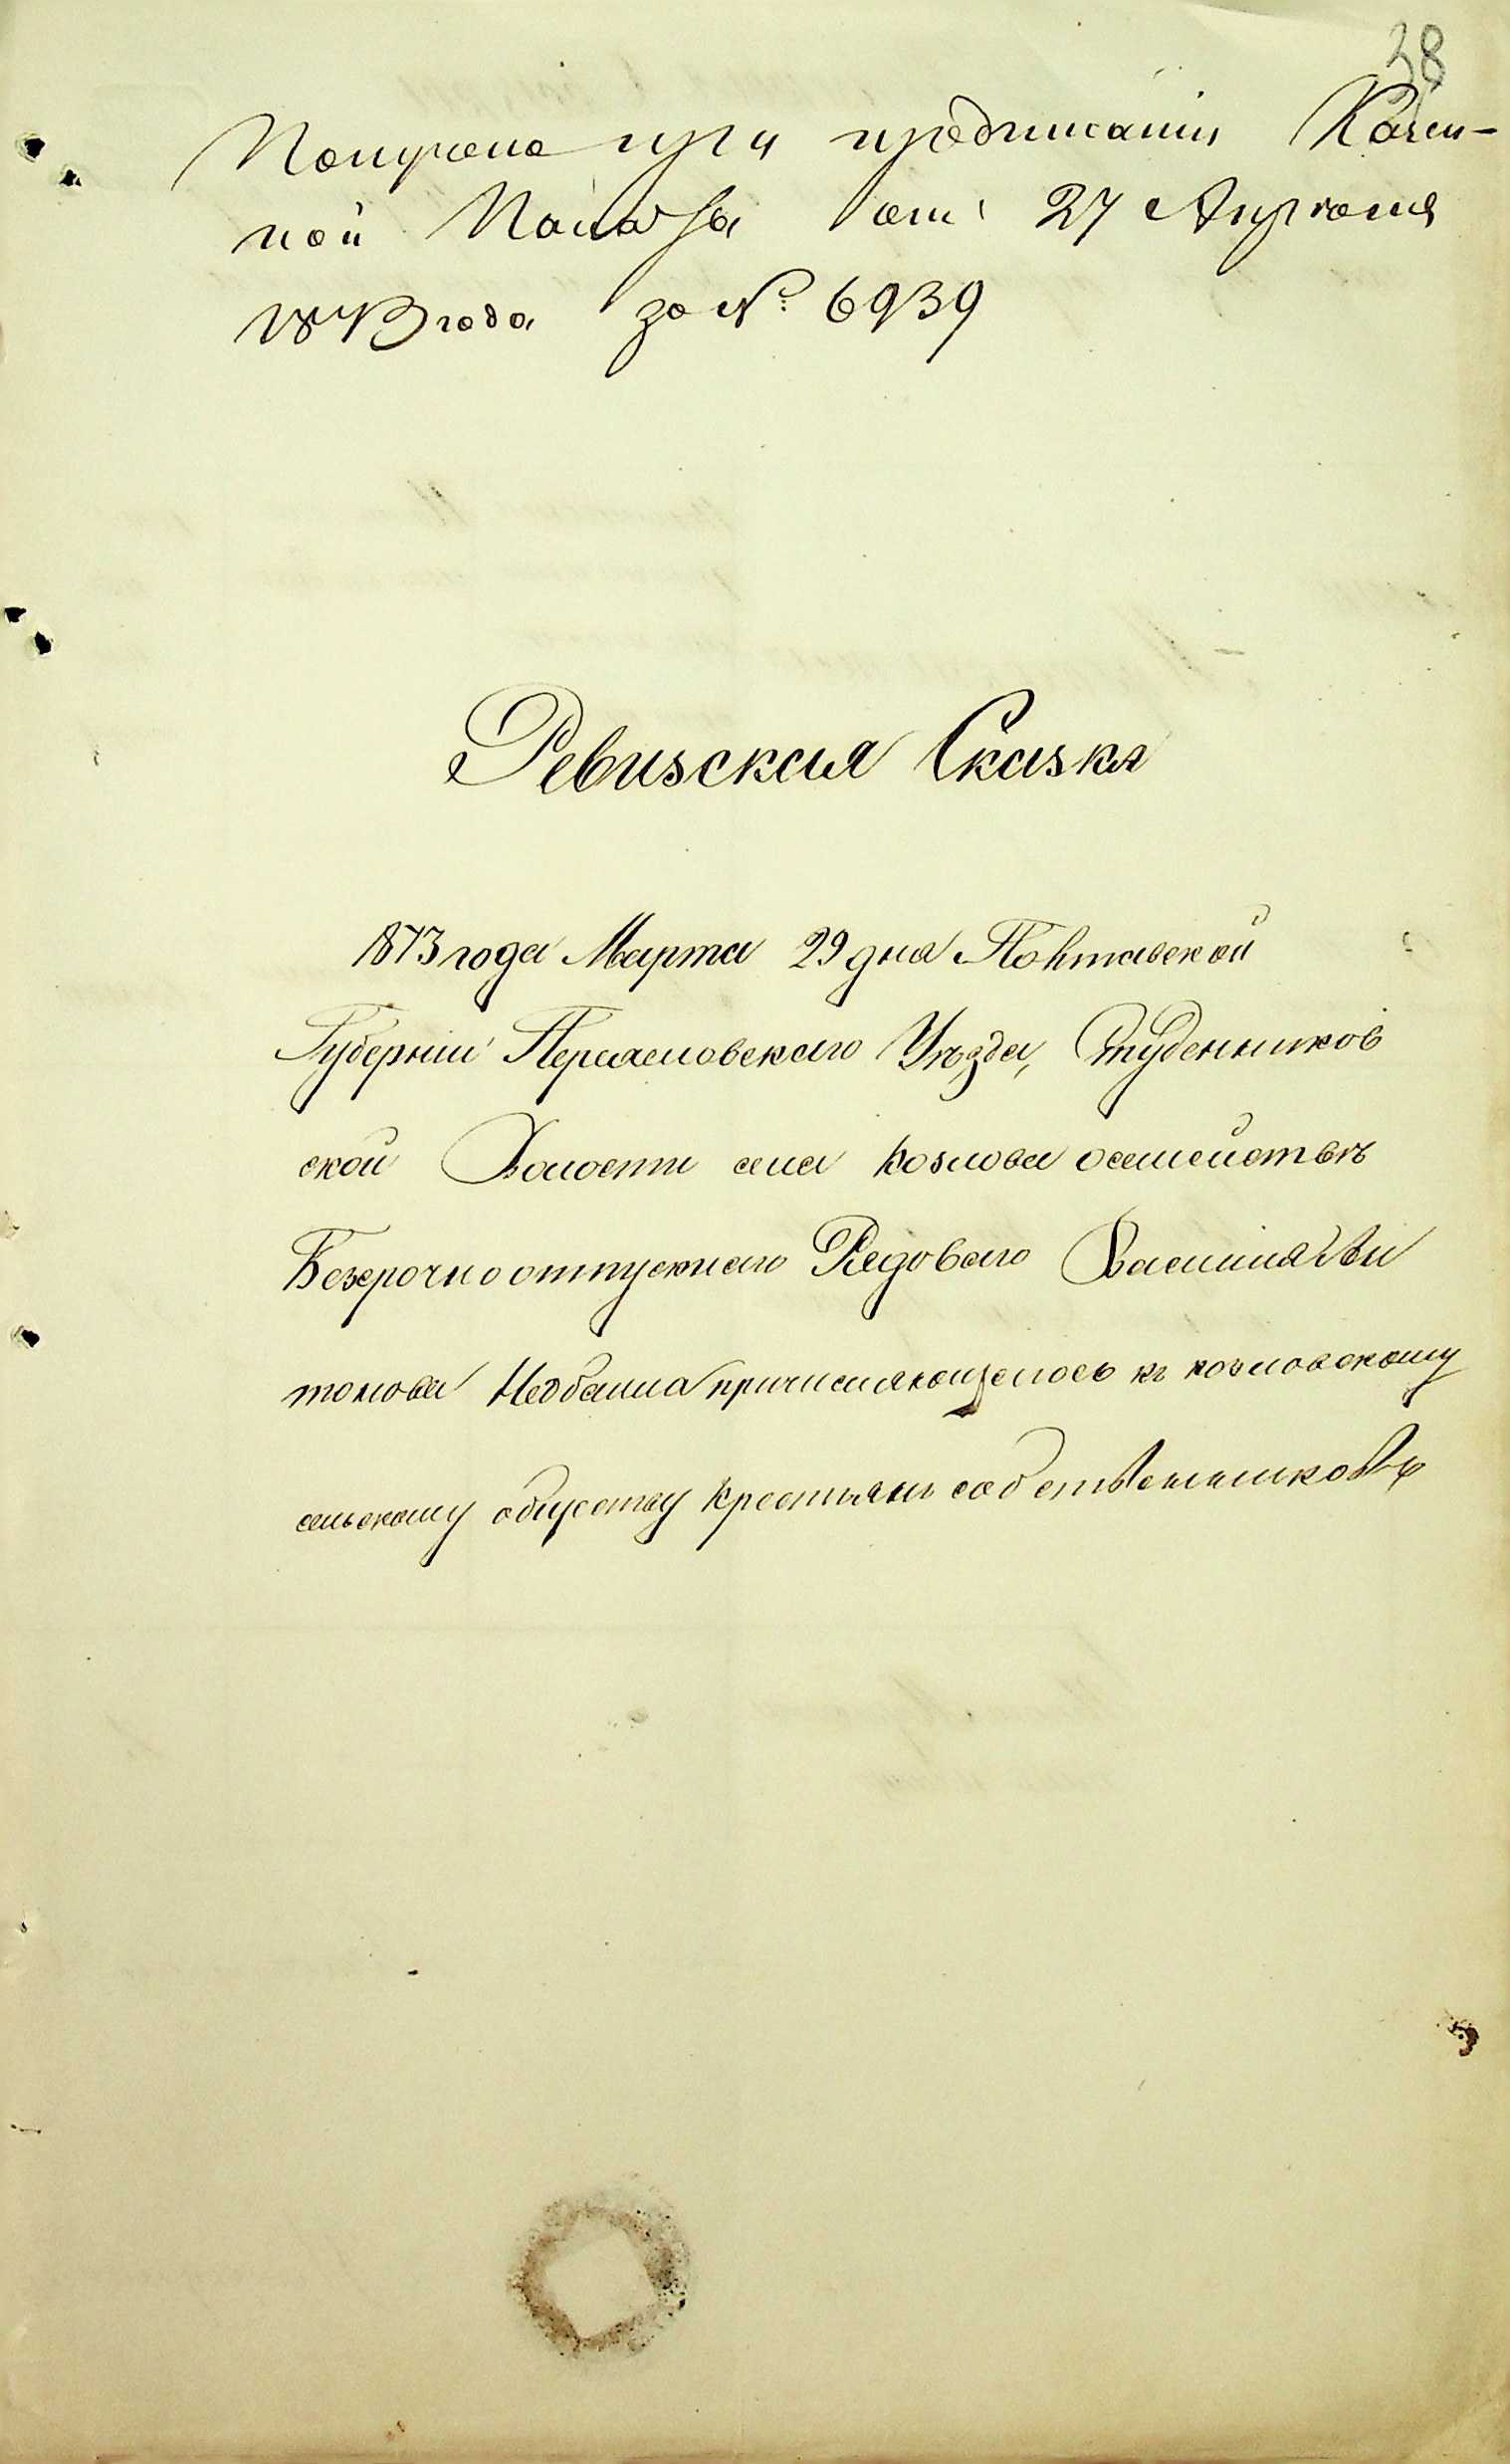 38
Получена при предписаніи Казен-
ной Палаты отъ 27 Апреля
1873 года за № 6939
Ревизская Сказка
1873 года Марта 29 дня Полтавской
Губерніи Переяславскаго Уѣзда, Студенников
ской Волости села Козлова осемействѣ
Безсрочноотпускнаго Рядоваго Василія Ан
тонова Недбайла причисляющегось къ козловскому
сельскому обществу крестьянъ собственниковъ